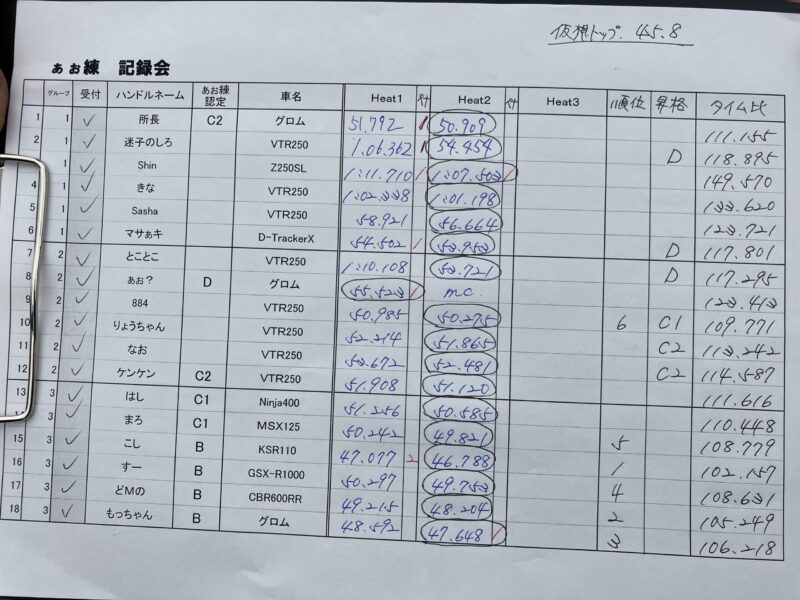 仮想トップ. 45.8
ぁぉ練 記録会
グループ 受付 ハンドルネーム ぁぉ練認定 車名 Heat1 ペナ Heat2 ペナ Heat3 順位 昇格 タイム比
1 1 ✓ 所長 C2 グロム 51.792 1 50.909 111.155
2 1 ✓ 迷子のしろ VTR250 1:06.362 1 54.454 D 118.895
1 ✓ Shin Z250SL 1:11.710 1 1:07.503 1 149.570
4 1 ✓ きな VTR250 1:02.338 1:01.198 133.620
5 1 ✓ Sasha VTR250 58.921 56.664 123.721
6 1 ✓ マサぁキ D-TrackerX 54.502 1 53.953 D 117.801
7 2 ✓ とことこ VTR250 1:10.108 53.721 D 117.295
8 2 ✓ ぁぉ? D グロム 55.523 1 m.c. 123.413
9 2 ✓ 884 VTR250 50.985 50.275 6 C1 109.771
10 2 ✓ りょうちゃん VTR250 52.214 51.865 C2 113.242
11 2 ✓ なお VTR250 53.672 52.481 C2 114.587
12 2 ✓ ケンケン C2 VTR250 51.908 51.120 111.616
13 3 ✓ はし C1 Ninja400 51.256 50.585 110.448
3 ✓ まろ C1 MSX125 50.242 49.821 5 108.779
15 3 ✓ こし B KSR110 47.077 2 46.788 1 102.157
16 3 ✓ すー B GSX-R1000 50.297 49.753 4 108.631
17 3 ✓ どMの B CBR600RR 49.215 48.204 2 105.249
18 3 ✓ もっちゃん B グロム 48.592 47.648 1 3 106.218